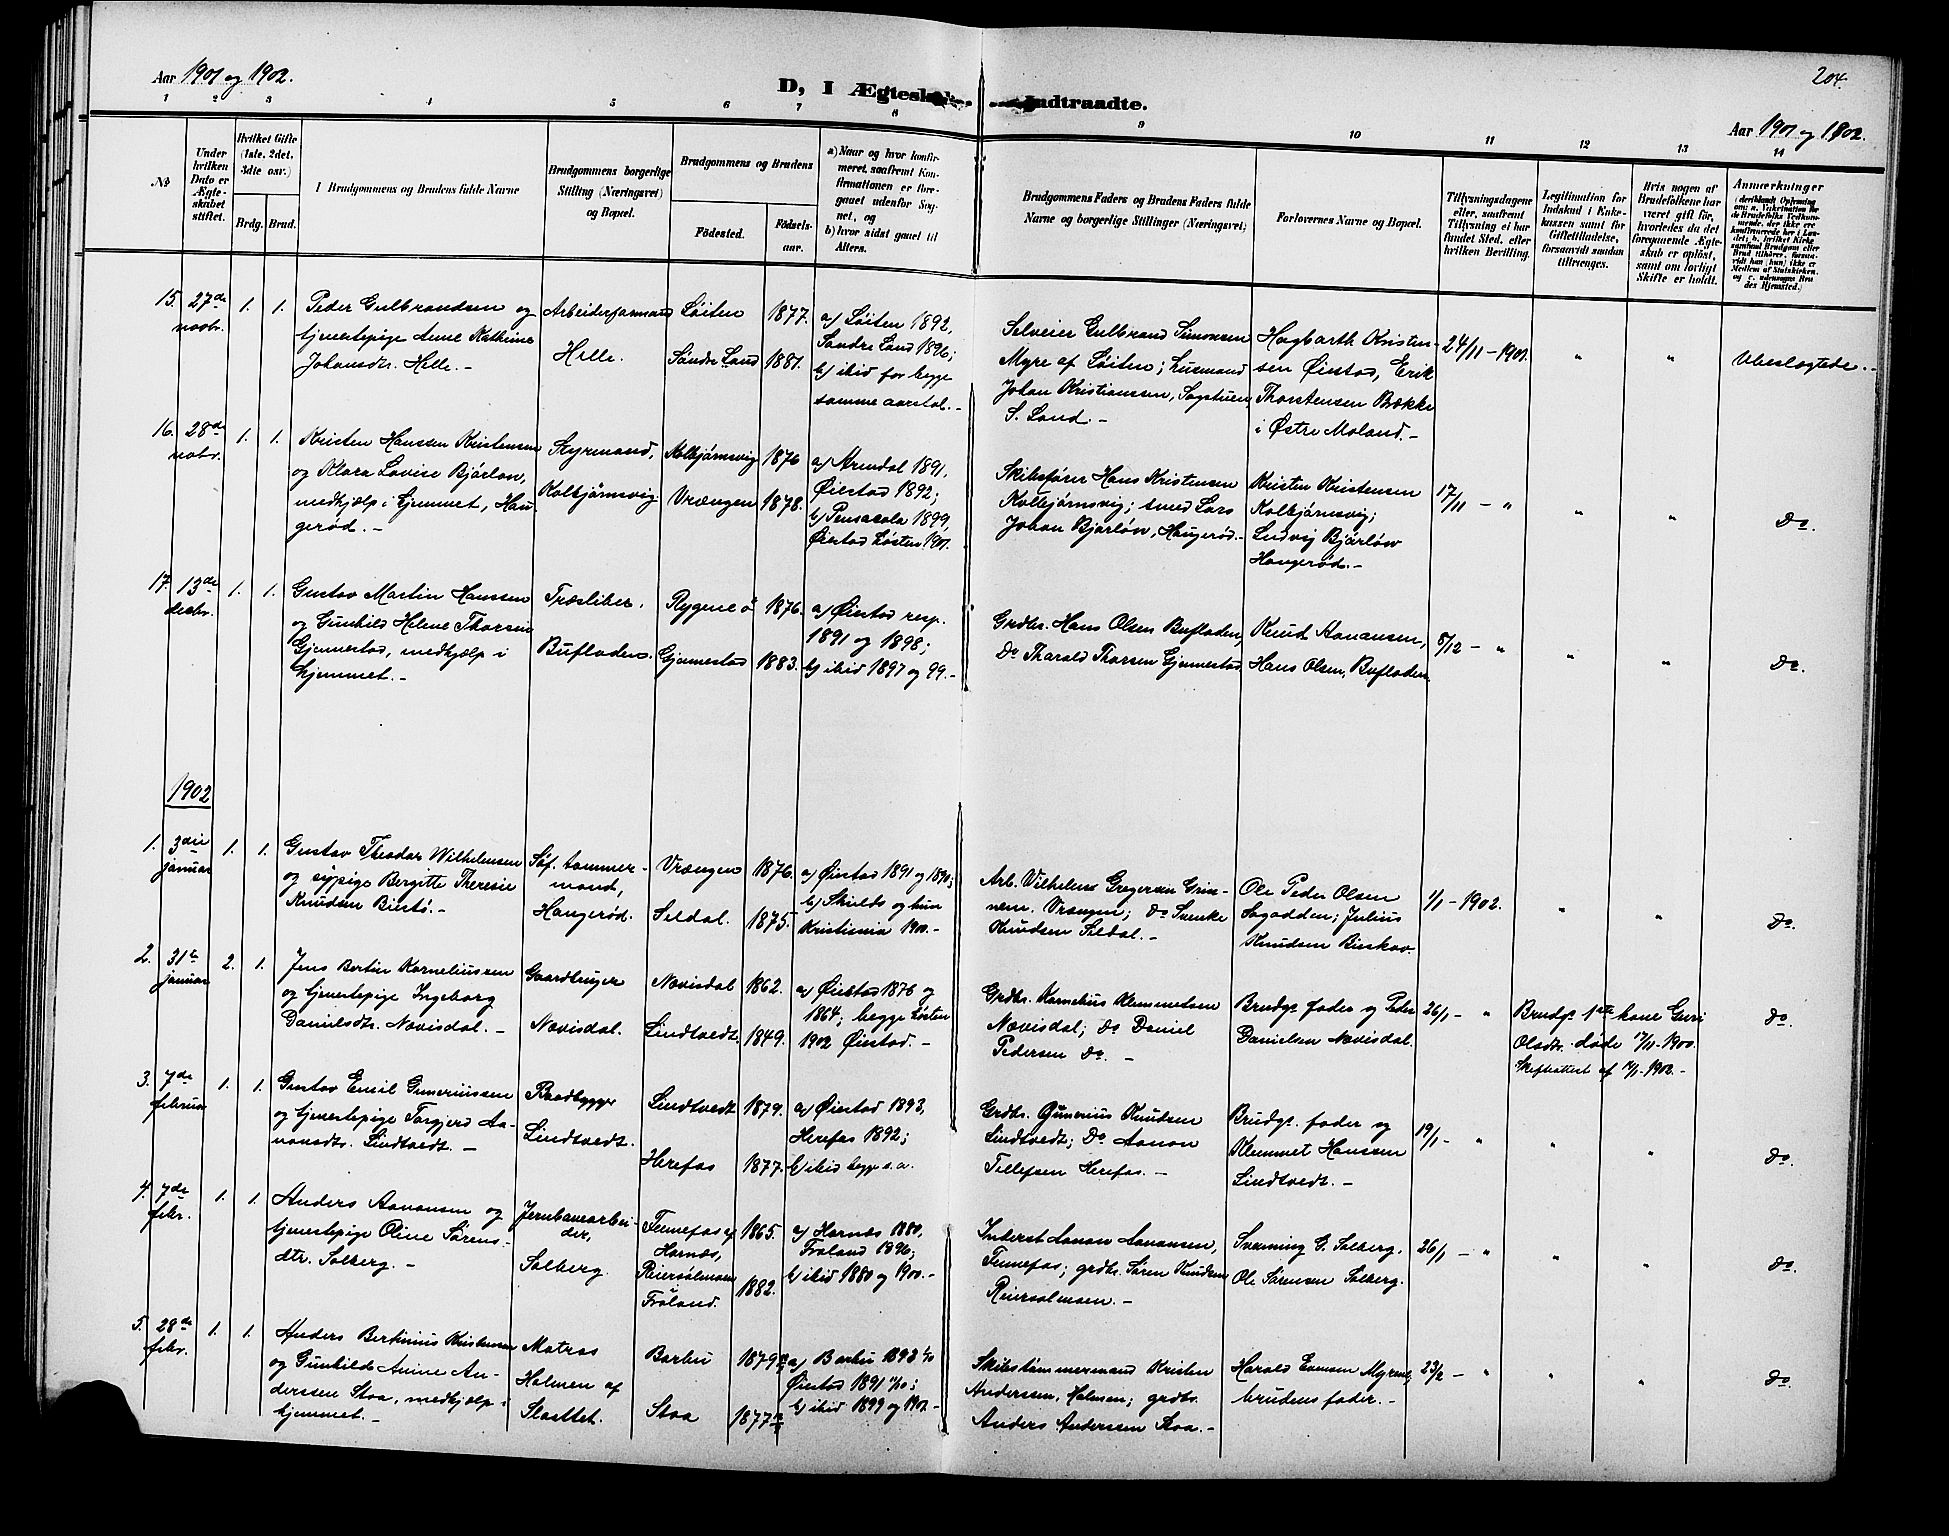 Aar 1901 og 1902.
204.
D, I Ægtesk
Indtraadte.
Aar 1901 og 1902.
1 2 3 4 5 6 7 8 9 10 11 12 13 14
No
Under hvilken Dato er Ægteskabet stiftet.
Hvilket Gifte (1ste, 2det, 3die osv.)
Brdg. Brud.
Brudgommens og Brudens fulde Navne
Brudgommens borgerlige Stilling (Næringsvei) og Bopæl.
Brudgommens og Brudens
Fødested.
Fødselsaar.
a) Naar og hvor konfirmeret, saafremt Konfirmationen er foregaaet udenfor Sognet, og
b) hvor sidst gaaet til Alters.
Brudgommens Faders og Brudens Faders fulde Navne og borgerlige Stillinger (Næringsvei)
Forlovernes Navne og Bopæl.
Tillysningsdagene eller, saafremt Tillysning ei har fundet Sted, efter hvilken Bevilling.
Legitimation for Indskud i Enkekassen samt for Giftetilladelse, forsaavidt saadan tiltrænges.
Hvis nogen af Brudefolkene har været gift før, hvorledes da det foregaaende Ægteskab er opløst, samt om lovligt Skifte er holdt.
Anmærkninger
15. 27de novbr. 1. 1.
Peder Gulbrandsen og
tjenestepige Anne Kathrine
Johansdtr. Helle. -
Arbeiderformand
Helle.
Løiten 1877.
Søndre Land 1881.
a) Løiten 1892,
Søndre Land 1896;
b) ibid for begge
samme aarstal. -
Selveier Gulbrand Simonsen
Myre af Løiten; husmand
Johan Kristiansen, Sagstuen,
S. Land. -
Hagbarth Kristensen
Øiestad, Erik
Thorstensen Bække
i Østre Moland. -
24/11 - 1901.
" "
Ubeslægtede. -
16. 28de novbr. 1. 1.
Kristen Hanssen Kristensen
og Klara Lovise Bjørløv,
medhjælp i hjemmet, Haugerød. -
Styrmand,
Kolbjørnsvig
Kolbjørnsvig 1876
Vrængen 1878.
a) Arendal 1891,
Øiestad 1892;
b) Pensacola 1899,
Øiestad høsten 1901.
Skibsfører Hans Kristensen
Kolbjørnsvig; smed Lars
Johan Bjørløv, Haugerød. -
Kristen Kristensen
Kolbjørnsvig;
Ludvig Bjørløv
Haugerød. -
17/11 - "
" "
Do.
17. 13de decbr. 1. 1.
Gustav Martin Hanssen
og Gunhild Helene Thorsen
Gjennestad, medhjælp i
hjemmet. -
Træsliber.
Bufladen.
Rygene ö 1876.
Gjennestad 1883.
a) Øiestad resp.
1891 og 1898;
b) ibid 1897 og 99. -
Grdbr. Hans Olsen Bufladen,
Do Tharald Thorsen Gjennestad
Knud Aanansen,
Hans Olsen, Bufladen
8/12 - "
" "
Do.
1902
1. 3die januar 1. 1.
Gustav Theodor Wilhelmsen
og sypige Bergitte Theresie
Knudsen Biestø. -
Søf. tømmermand,
Haugerød.
Vrængen 1876.
Seldal. 1875.
a) Øiestad 1891 og 1890;
b) Shields og hun
Kristiania 1900. -
Arb. Vilhelms Gregersen
Vrængen; do Svenke
Knudsen Seldal. -
Ole Peder Olsen
Sagodden; Julius
Knudsen
1/1 - 1902.
" "
Do.
2. 31te januar 2. 1.
Jens Bertin Korneliussen
og tjenestepige Ingeborg
Danielsdtr. Nævisdal. -
Gaardbruger
Nævisdal.
Nævisdal 1862.
Lindtvedt. 1849.
a) Øiestad 1876 og
1864; begge høsten
1902 Øiestad. -
Grdbr. Kornelius Klemmetsen
Nævisdal; do Daniel
Pedersen do. -
Brudgs. fader og Peder
Danielsen Nævisdal.
26/1 - "
Brudgs. 1ste kone Guri
Olsdtr. døde 17/11 - 1900
Skifteattest af - 1902. -
do
3. 7de februar 1. 1.
Gustav Emil Gunerriussen
og tjenestepige Torgjerd Aanonsdtr.
Lindtvedt. -
Baadbygger
Lindtvedt.
Lindtvedt 1879.
Herefos 1877.
a) Øiestad 1893,
Herefos 1892;
b) ibid begge s.a.
Grdbr. Gunerius Knudsen
Lindtvedt; Do Aanon
Tellefsen Herefos. -
Brudgs. fader og
Klemmet Hanssen
Lindtvedt. -
19/1 - "
" "
Do.
4. 7de febr. 1. 1.
Anders Aanonsen og
tjenestepige Oline Sørensdtr.
Solberg. -
Jernbanearbeider,
Solberg
Tennefos af Hornnes, 1865.
Reiersølmoen Frøland. 1882.
a) Hornnes 1880,
Frøland 1896;
b) ibid 1880 og 1900. -
Inderst Aanon Aanonsen,
Tennefos; grdbr. Søren Knudsen
Reiersølmoen. -
Svenning G. Solberg.
Ole Sørensen Solberg.
26/1 - "
" "
Do.
5. 28de febr. 1. 1.
Anders Bertinius Kristensen
og Gunhilde Anine Anderssen
Stoa, medhjælp i
hjemmet. -
Matros
Holmen af
Slottet.
Barbu 1879
Stoa 1877
a) Barbu 1893
Øiestad 1891
b) ibid 1899 og 1901. -
Skibstømmermand Kristen
Anderssen, Holmen; grdbr.
Anders Anderssen Stoa. -
Harald Evensen Myrene,
brudens fader. -
23/2 - "
" "
Do